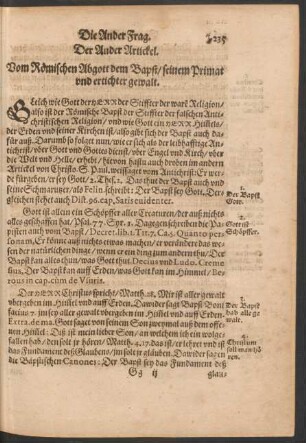 Die Ander Frag. 235
Der Ander Artickel.
Vom Römischen Abgott dem Bapst/ seinem Primat
vnd ertichter gewalt.
Gleich wie Gott der HERR der Stiffter der warē Religion/
also ist der Römische Bapst der Stiffter der falschen Anti-
christischen Religion/ vnd wie Gott ein HERR Himels/
der Erden vnd seiner Kirchen ist/ also gibt sich der Bapst auch da-
für auß. Darumb so folget nun/ wie er sich als der leibhafftige An-
tichrist/ vber Gott vnd Gottes dienst/ vber Engel vnd Kirch/ vber
die Welt vnd Helle/ erhebt/ hievon hastu auch droben im andern
Artickel von Christo S. Paul. weissaget vom Antichrist: Er werde
für geben/ er sey Gott/ 2. Thes. 2. Das thut der Bapst auch vnd
seine Schmarutzer/ als Felin. schreibt: Der Bapst sey Gott. Der-
gleichen stehet auch Dist. 96. cap. Satis euidenter.
1.
Der Bapst
Gott.
Gott ist allein ein Schöpffer aller Creaturen/ der auß nichts
alles geschaffen hat/ Psal. 77. Dagegen schreiben die Pa-
pisten auch vom Bapst/ Decret. lib. 1. Tit. 7. Ca. 5. Quanto per
sonam, Er könne auß nichts etwas machen/ er verändere das we-
sen der natürlichen dinge/ wenn er eins dem andern thu/ Der
Bapst kan alles thun/ was Gott thut/ Decius vnd Ludo. Creme
thus. Der Bapst kan auff Erden/ was Gott kan im Himmel/ Be-
roius in cap. cùm de
2.
Gott ist
Schöpffer.
Der HERR Christus spricht/ Matth. 28. Mir ist aller gewalt
vbergeben im Himel vnd auff Erden. Dawider sagt Bapst Boni
facius 7. jm sey aller gewalt vbergeben im Himel vnd auff Erden/
Extra. de ma. Gott saget von seinem Son zeugniß auß dem offe-
nen Himel: Diß ist mein lieber Son/ an welchem ich ein wolge-
fallen hab/ den solt jr hören/ Matth. 4. 17. das ist/ er lehret vnd ist
das Fundament deß Glaubens/ jm solt jr glauben. Dawider sagen
die Bäpstischen Canones: Der Bapst sey das Fundament deß
3.
Der Bapst
hab alle ge
walt.
4.
Christum
soll man hö
ren.
Gg ij glau-